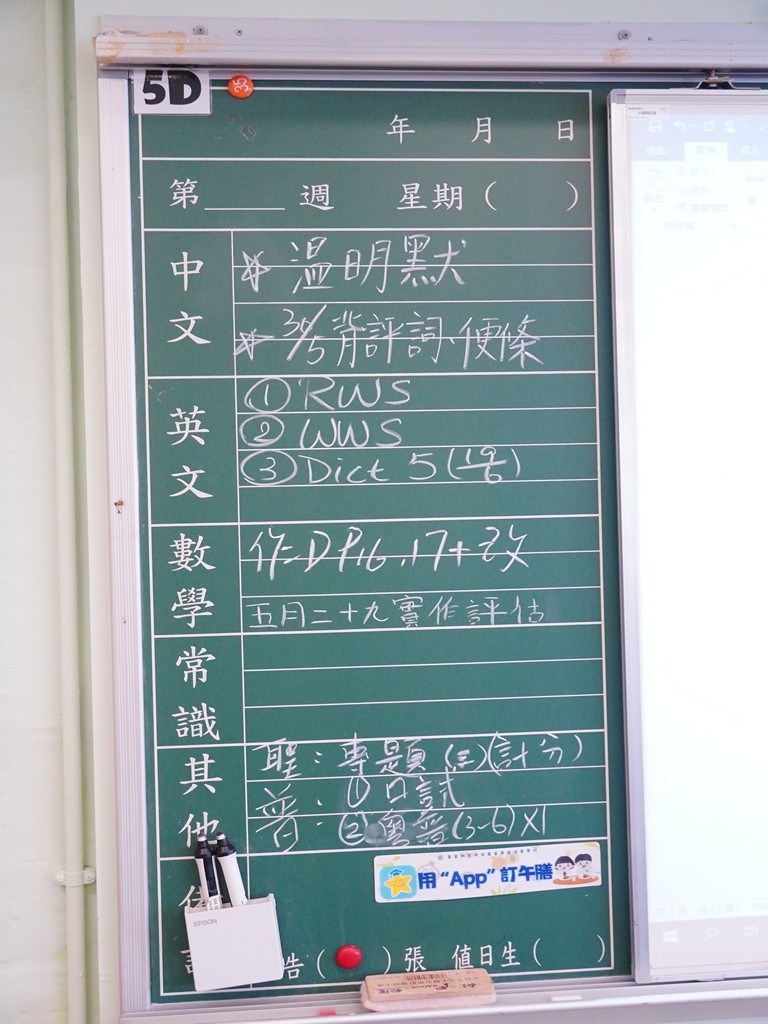 5D
35
年 月 日
第 週 星期( )
中文
* 溫明默
* 30/5 背評詞、便條
英文
① RWS
② WWS
③ Dict 5 (19/6)
數學
作=D P.16, 17+改
五月二十九實作評估
常識
其他
聖:專題(三)(計分)
普:①口試
②粵普(3-6)X1
用“App”訂午膳
EPSON
告( )張 值日生( )